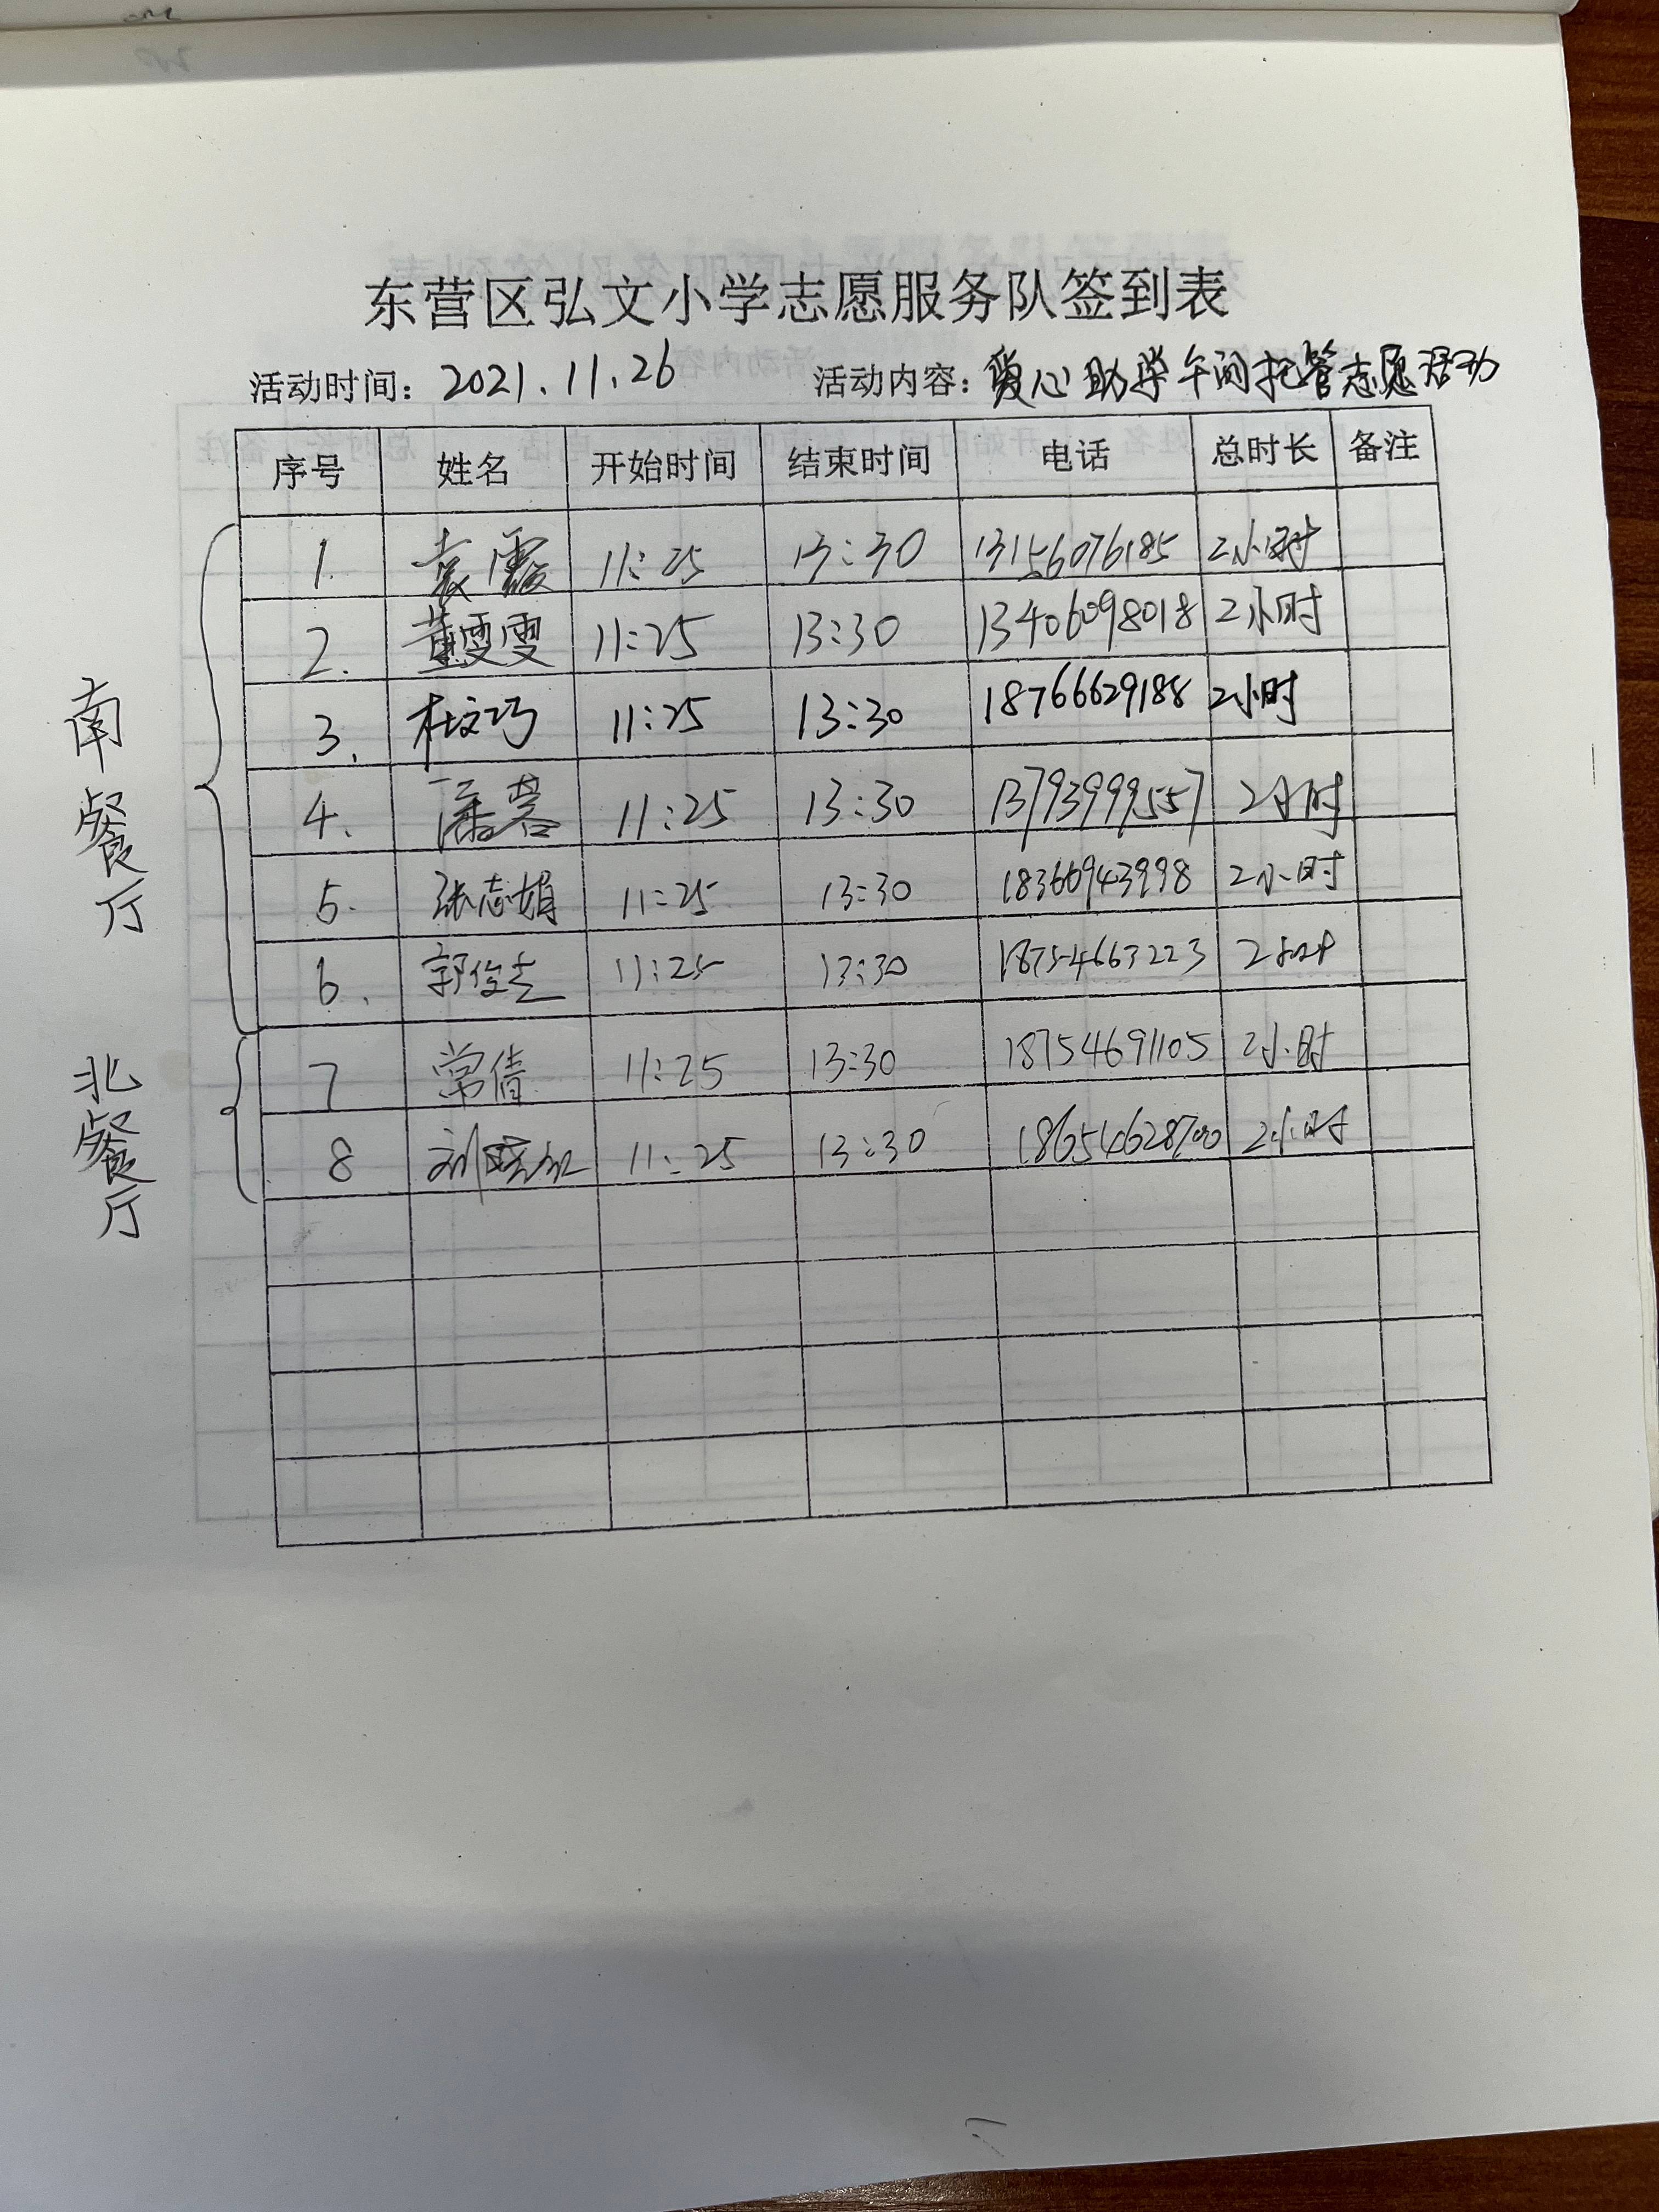 东营区弘文小学志愿服务队签到表
活动时间：2021.11.26 活动内容：爱心助学午间托管志愿活动
序号 姓名 开始时间 结束时间 电话 总时长 备注
南餐厅
1. 袁霞 11:25 13:30 13156076185 2小时
2. 董雯雯 11:25 13:30 13406098018 2小时
3. 杜文巧 11:25 13:30 18766629188 2小时
4. 潘蓉 11:25 13:30 13793999557 2小时
5. 张志娟 11:25 13:30 18366943998 2小时
6. 郭俊 11:25 13:30 18754663223 2小时
北餐厅
7 常倩 11:25 13:30 18754691105 2小时
8 刘 11:25 13:30 18654628700 2小时